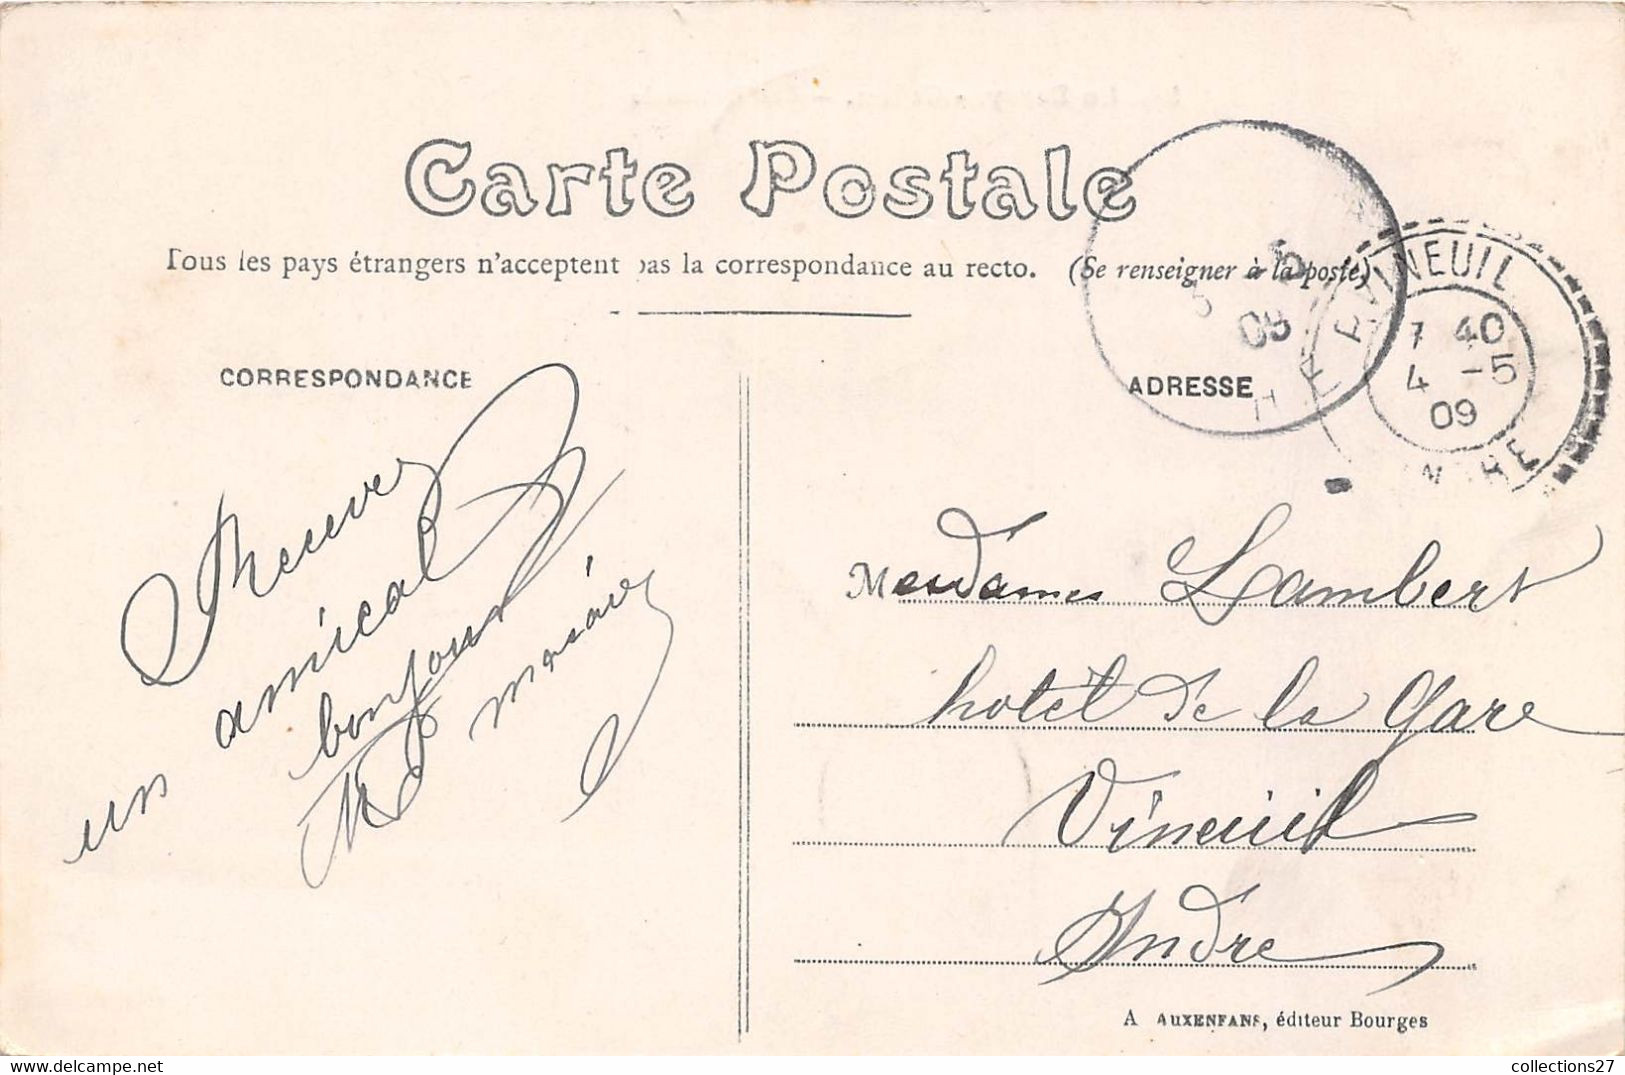 Carte Postale
Tous les pays étrangers n'acceptent pas la correspondance au recto. (Se renseigner à la poste)
CORRESPONDANCE
ADRESSE
VINEUIL
7 40
4 -5
09
INDRE
5 5
09
Recevez
un amical
bonjour
Mesdames Lambert
hotel de la Gare
Vineuil
Indre
A AUXENFANS, éditeur Bourges
collections27